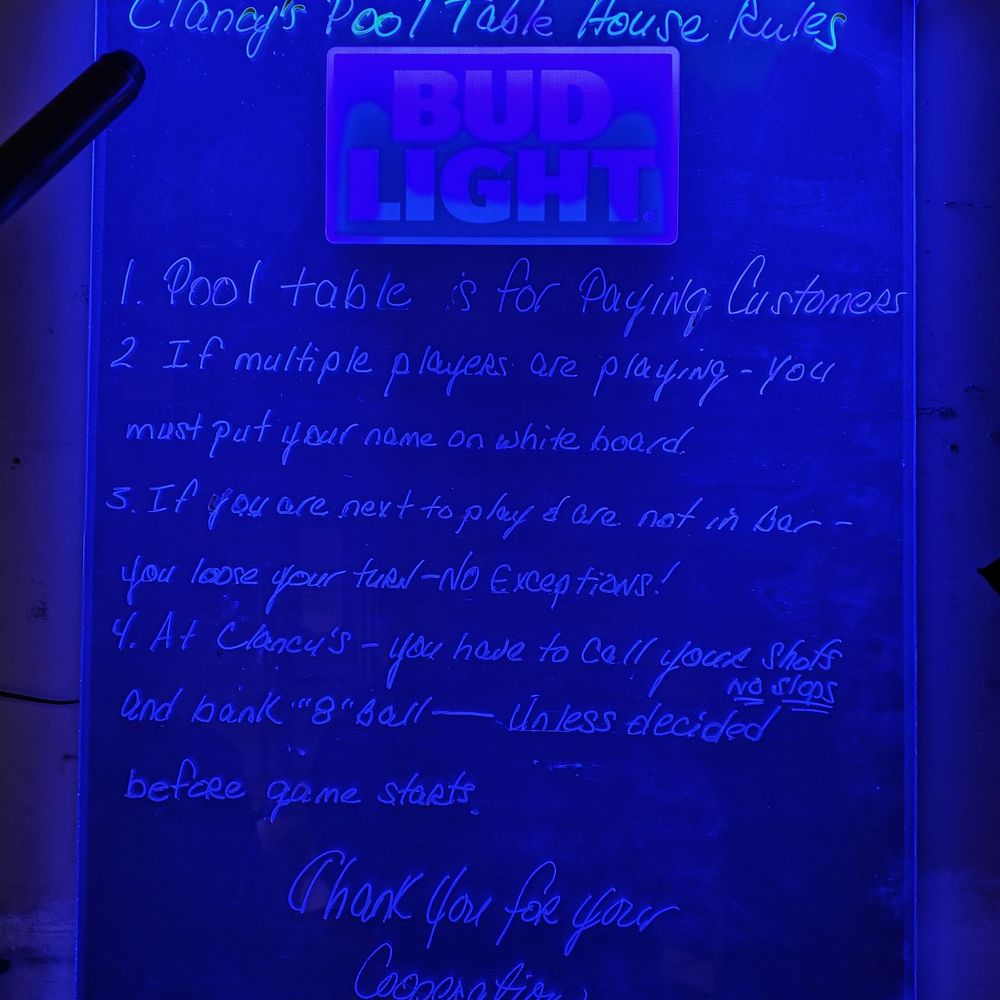 Clancy's Pool Table House Rules
BUD
LIGHT®
1. Pool table is for Paying Customers
2 If multiple players are playing - you
must put your name on white board.
3. If you are next to play & are not in bar -
you loose your turn - NO Exceptions!
4. At Clancy's - you have to call your shots
NO Slops
and bank "8" Ball — Unless decided
before game starts.
Thank You for your
Cooperation